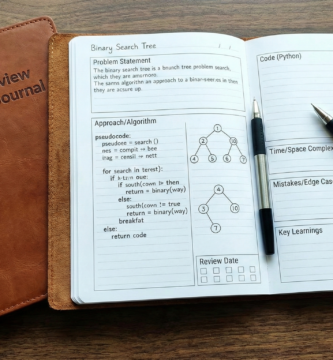 view
Journal
Binary Search Tree
Problem Statement
The binary search tree is a brunch tree problem search,
which they are
The same algorithm an approach to a in then
they are acture up.
Approach/Algorithm
pseudocode:
pseudoee = search ()
nes = compit → bee
irag = rensil → nett
for search in terest):
if outo:
if south (cown != then
return = binary(way)
else:
south(cown != true
return = binary(way)
breakfat
else:
return code
1
2
10
4
5
6
7
4
3
10
7
Review Date
Code (Python)
Time/Space Complex
Mistakes/Edge Cas
Key Learnings